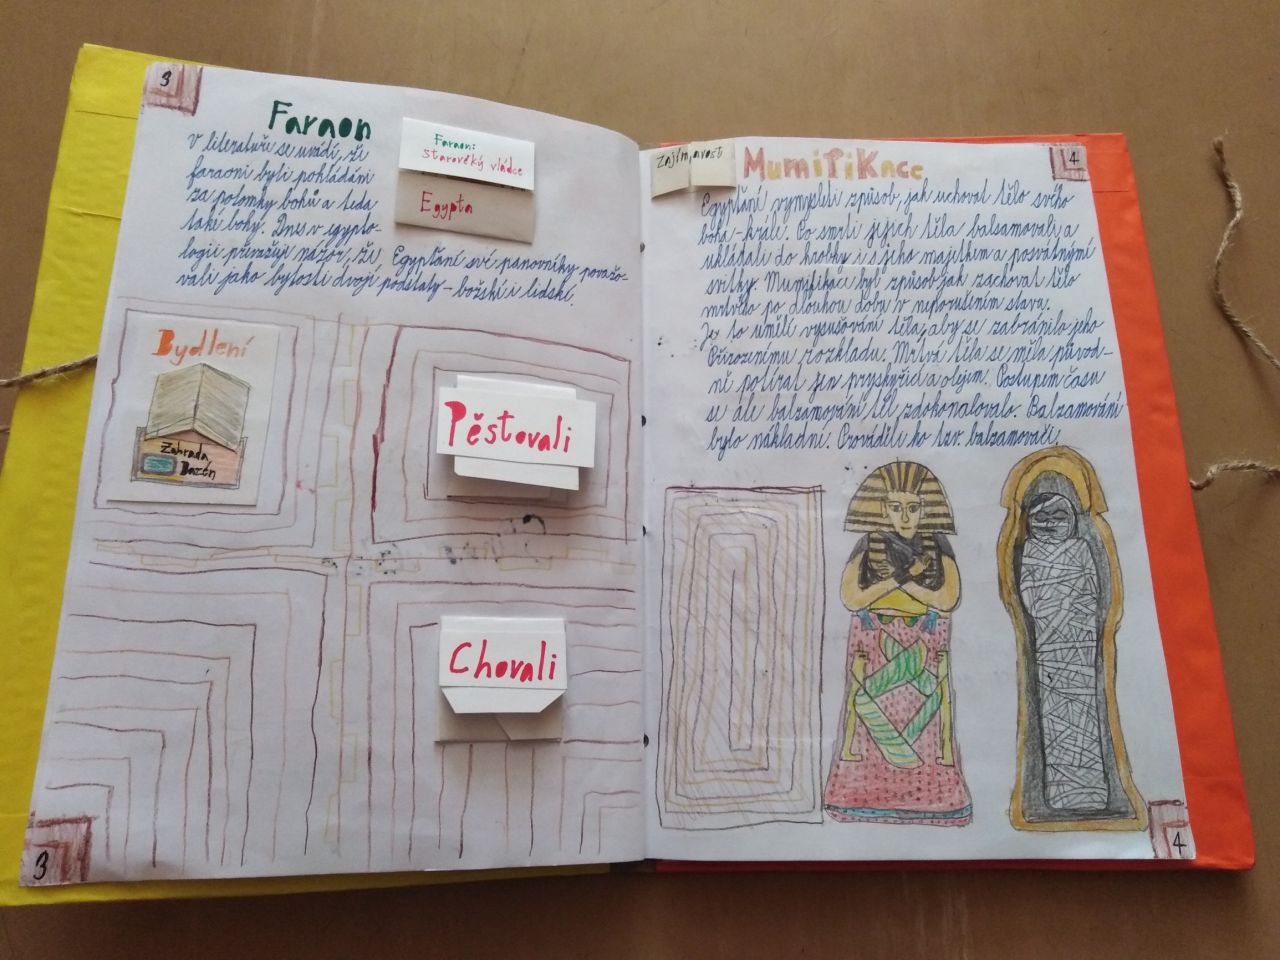 3
Faraon
V literatuře se uvádí, že
faraoni byli pohládáni
za potomky bohů a teda
také bohy. Dnes v egypto-
logii převažuje názor, že Egypťani své panovníky považo-
vali jako bytosti dvojí podstaty – božskí i lidskí.
Faraon:
starověký vládce
Egypta
Bydlení
Zahrada
Bazén
Pěstovali
Chovali
3
Zajímavost
MumifiKace
4
Egypťăni vymysleli způsob jak uchovat tělo svého
boha-krále. Po smrti jejich těla balsamovali a
ukládali do hrobky i s jeho majetkem a posvátnými
svitky. Mumifikace byl způsob jak zachovat tělo
mrtvého po dlouhou dobu v neporušeném stavu.
Je to umělé vysušování těla, aby se zabránilo jeho
Přirozenímu rozkladu. Mrtvá těla se měla původ-
ně potírat jen pryskyřicí a olejem. Postupem času
se ale balzamování těl zdokonalovalo. Balzamování
bylo nákladní. Prováděli ho tzv. balzamovači.
4